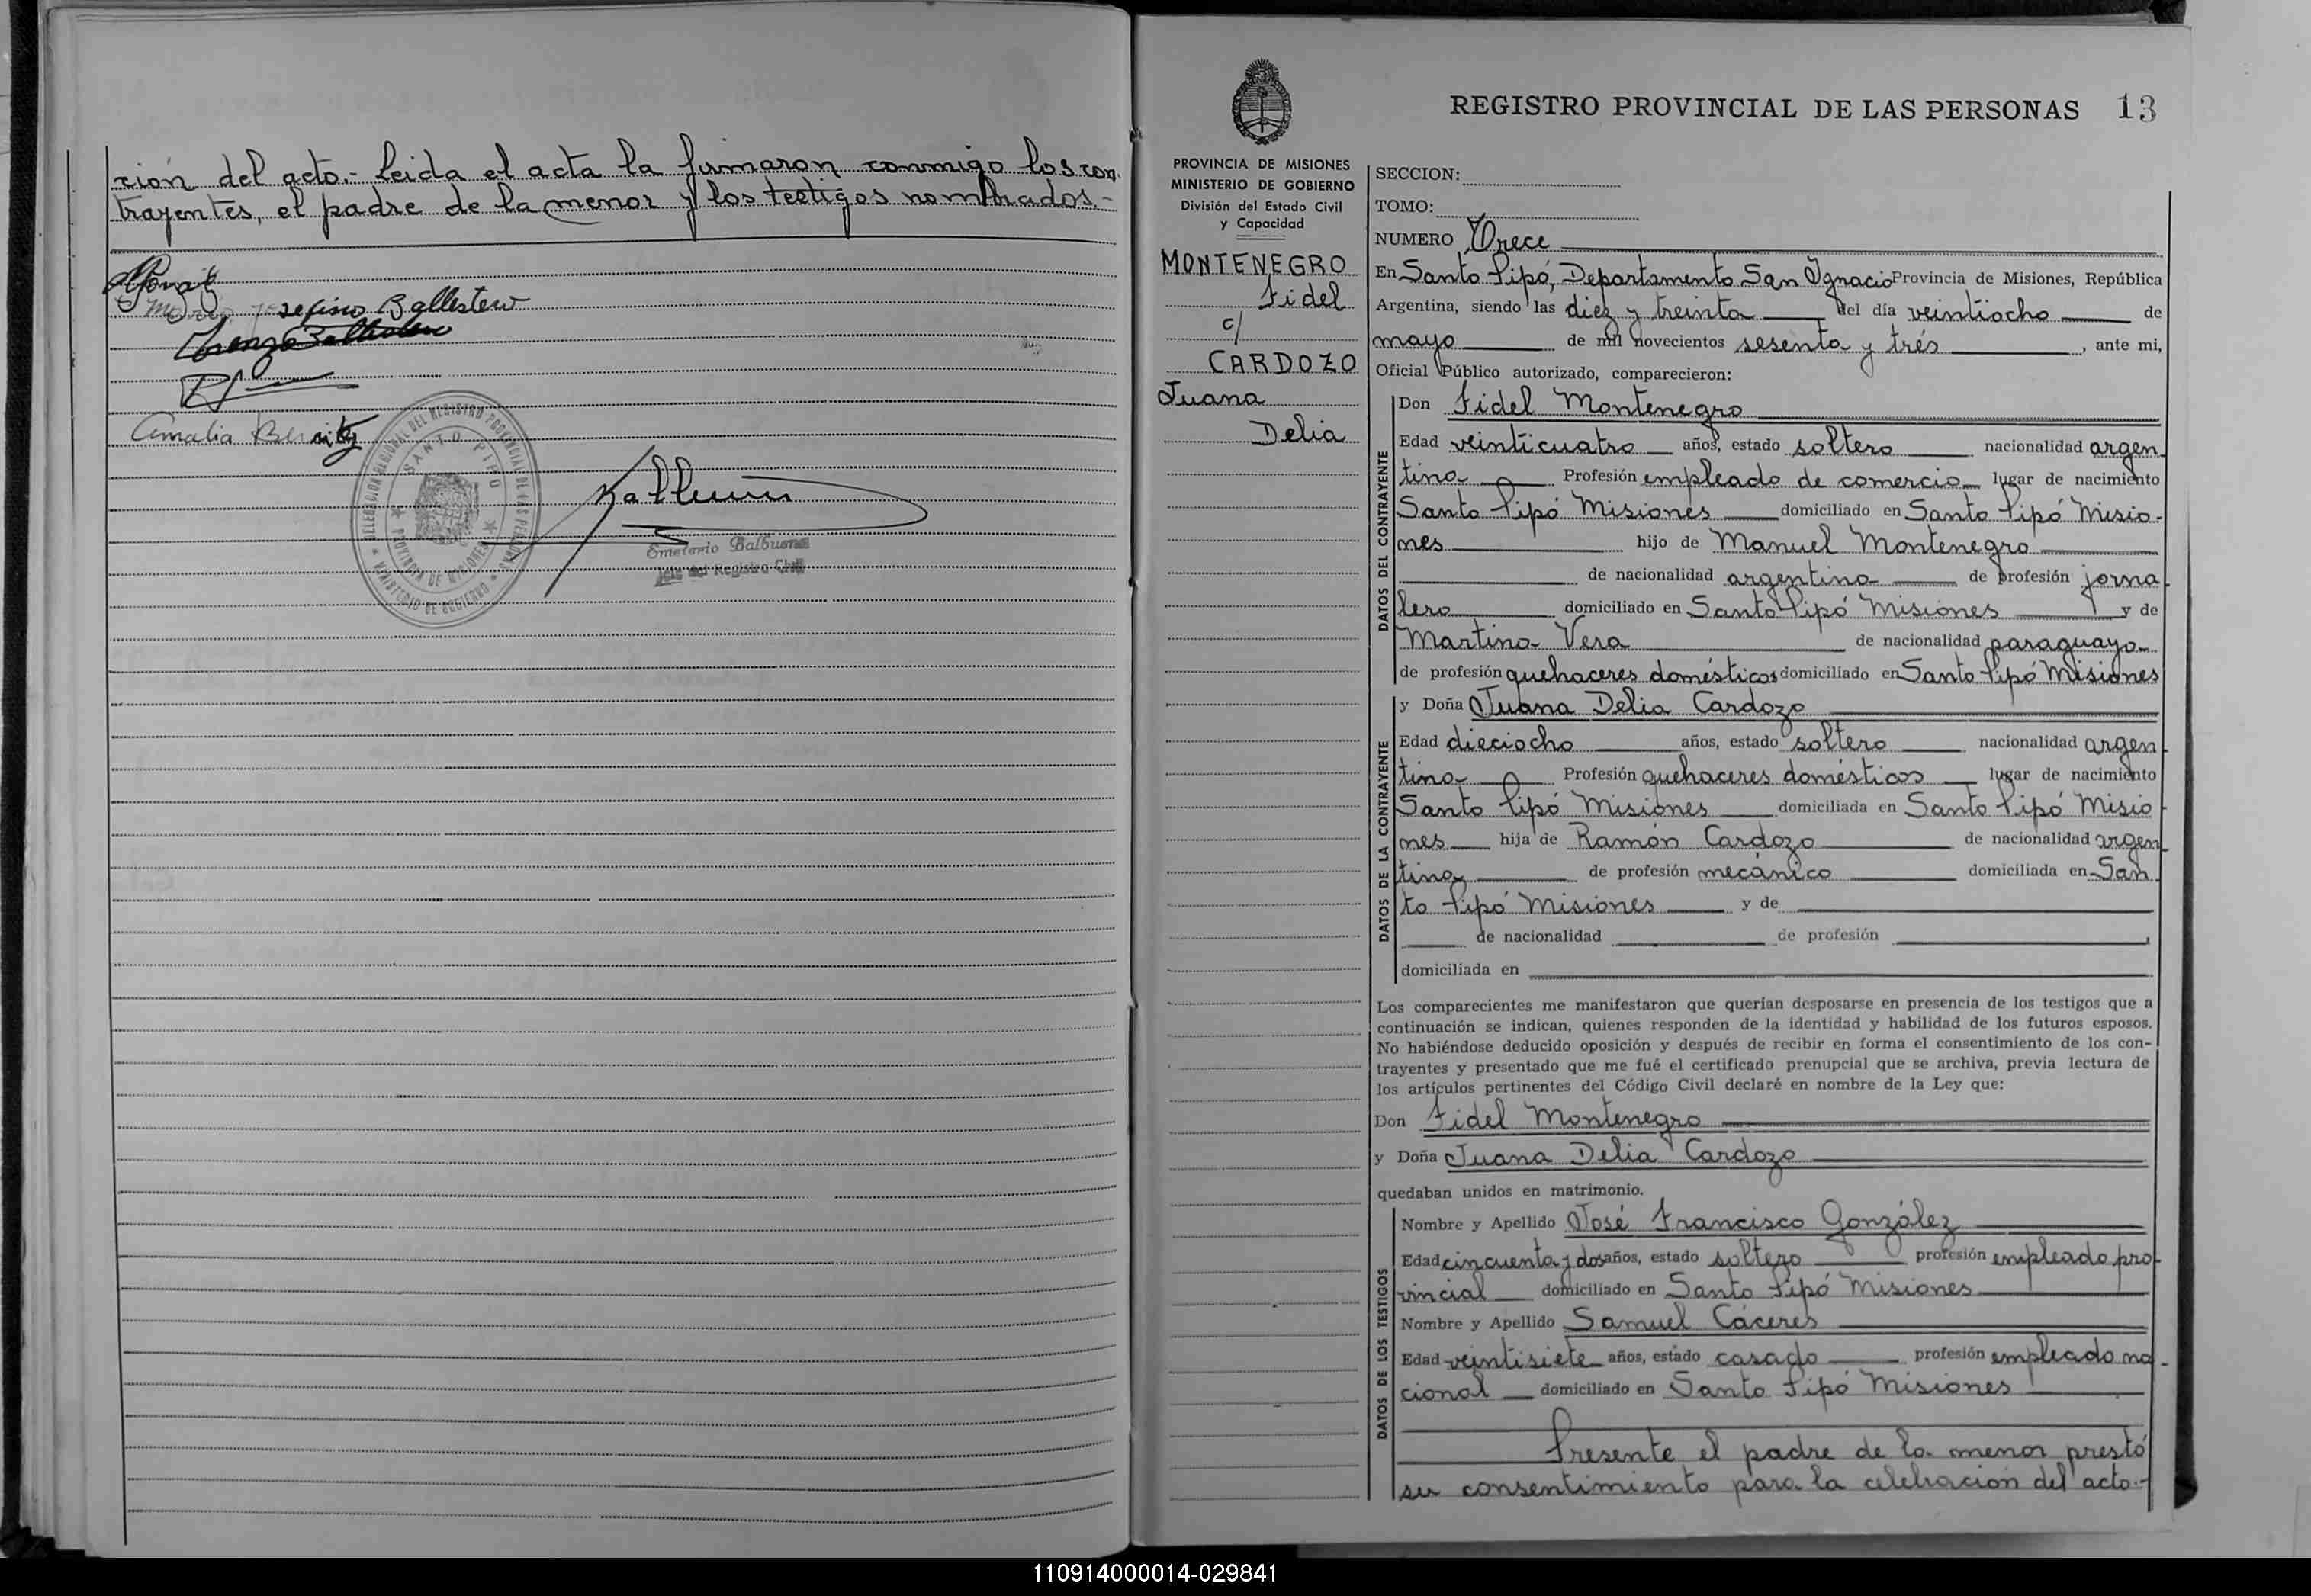 ción del acto.- Leida el acta la firmaron conmigo los con
trayentes, el padre de la menor y los testigos nombrados.-
Ballestero
Lorenzo Ballestero
Amalia Benitez
DELEGACION REGIONAL DEL REGISTRO PROVINCIAL DE LAS PERSONAS
MINISTERIO DE GOBIERNO
SANTO PIPO
PROVINCIA DE MISIONES
Emeterio Balbuena
Jefe del Registro Civil
REGISTRO PROVINCIAL DE LAS PERSONAS 13
PROVINCIA DE MISIONES
MINISTERIO DE GOBIERNO
División del Estado Civil
y Capacidad
MONTENEGRO
Fidel
c/
CARDOZO
Juana
Delia
SECCION:
TOMO:
NUMERO Trece
En Santo Pipó, Departamento San Ignacio Provincia de Misiones, República
Argentina, siendo las diez y treinta del día veintiocho de
mayo de mil novecientos sesenta y trés, ante mi,
Oficial Público autorizado, comparecieron:
DATOS DEL CONTRAYENTE
Don Fidel Montenegro
Edad veinticuatro años, estado soltero nacionalidad argen
tina Profesión empleado de comercio lugar de nacimiento
Santo Pipó Misiones domiciliado en Santo Pipó Misio-
nes hijo de Manuel Montenegro
de nacionalidad argentina de profesión jorna
lero domiciliado en Santo Pipó Misiones y de
Martina Vera de nacionalidad paraguaya
de profesión quehaceres domésticos domiciliado en Santo Pipó Misiones
DATOS DE LA CONTRAYENTE
y Doña Juana Delia Cardozo
Edad dieciocho años, estado soltera nacionalidad argen
tina Profesión quehaceres domésticos lugar de nacimiento
Santo Pipó Misiones domiciliada en Santo Pipó Misio
nes hija de Ramón Cardozo de nacionalidad argen
tina de profesión mecánico domiciliada en San
to Pipó Misiones y de
de nacionalidad de profesión
domiciliada en
Los comparecientes me manifestaron que querían desposarse en presencia de los testigos que a
continuación se indican, quienes responden de la identidad y habilidad de los futuros esposos.
No habiéndose deducido oposición y después de recibir en forma el consentimiento de los con-
trayentes y presentado que me fué el certificado prenupcial que se archiva, previa lectura de
los artículos pertinentes del Código Civil declaré en nombre de la Ley que:
Don Fidel Montenegro
y Doña Juana Delia Cardozo
quedaban unidos en matrimonio.
DATOS DE LOS TESTIGOS
Nombre y Apellido José Francisco González
Edad cincuenta y dos años, estado soltero profesión empleado pro-
vincial domiciliado en Santo Pipó Misiones
Nombre y Apellido Samuel Cáceres
Edad veintisiete años, estado casado profesión empleado na-
cional domiciliado en Santo Pipó Misiones
Presente el padre de la menor prestó
su consentimiento para la celebración del acto.-
110914000014-029841